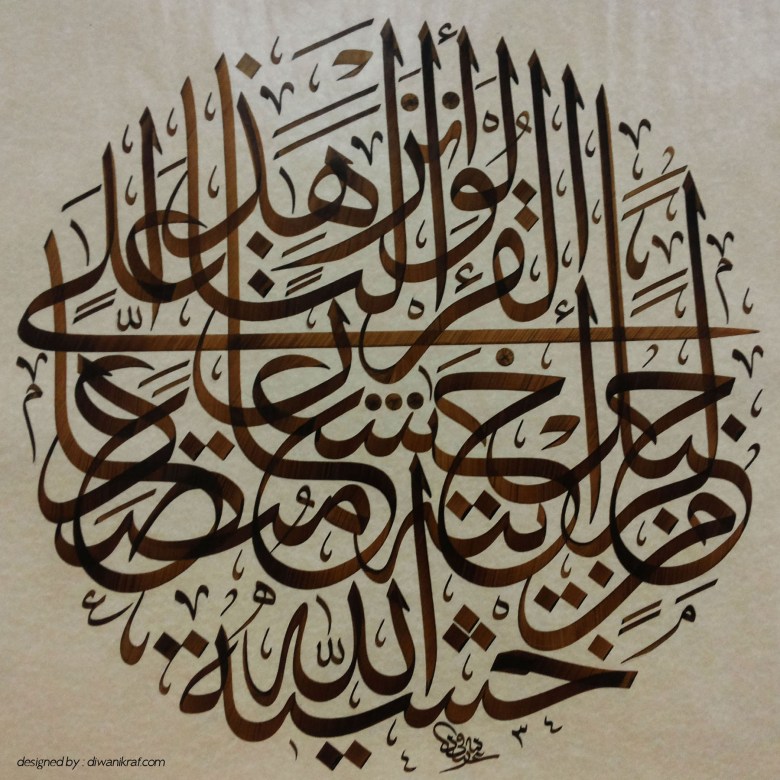 لو أنزلنا هذا القرآن على
جبل لرأيته خاشعا متصدعا من
خشية الله
١٤٣٤
designed by : diwanikraf.com